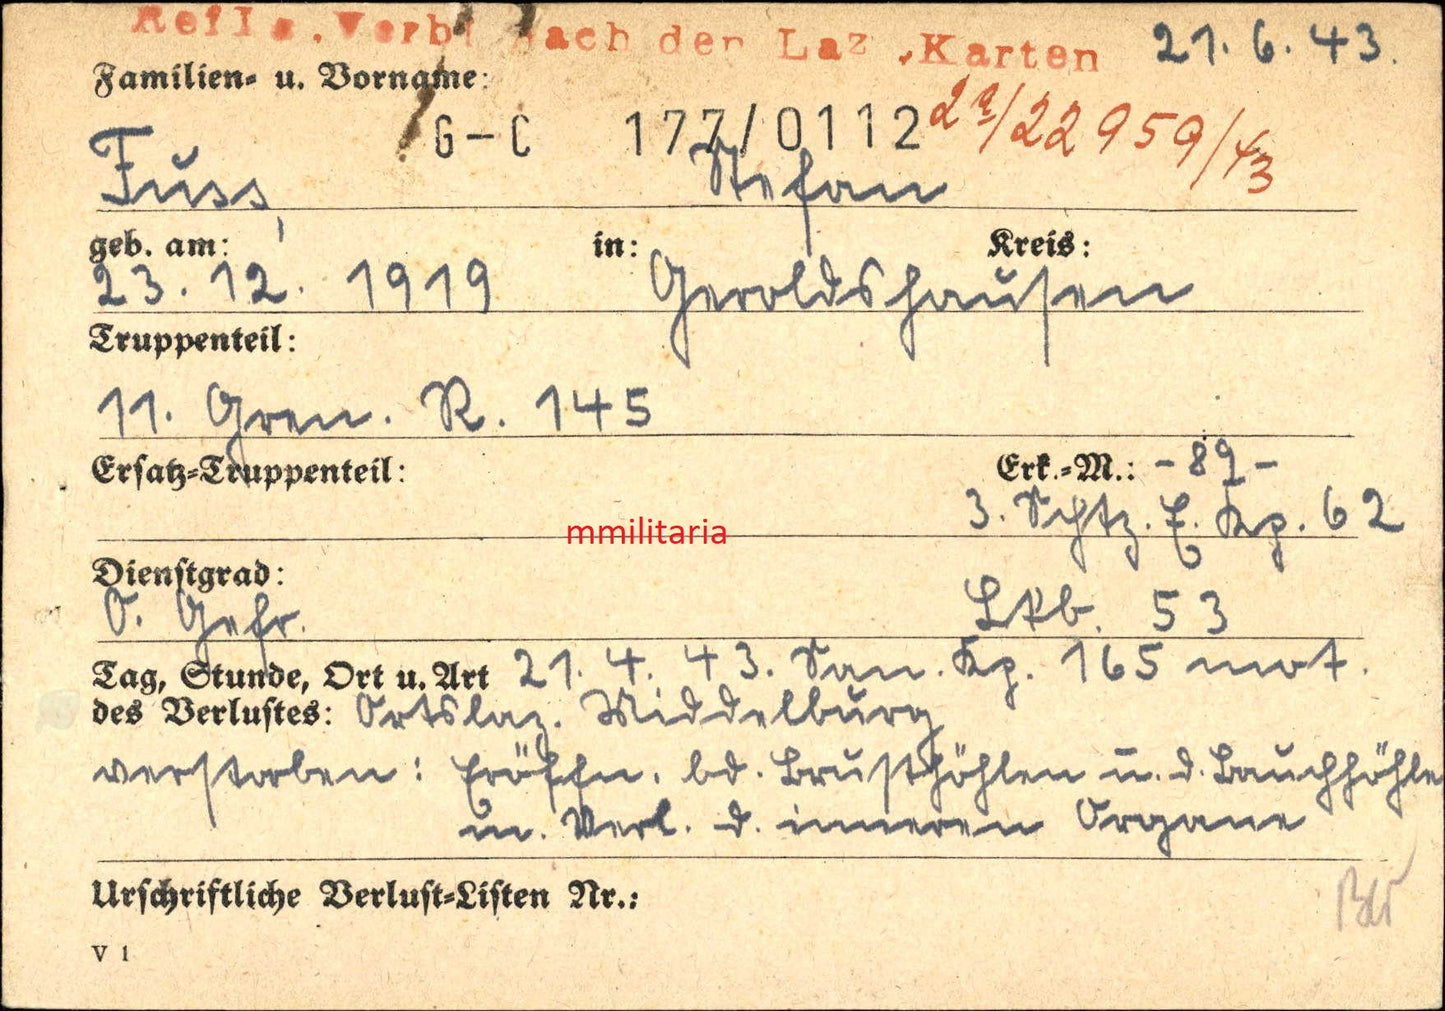 Verbl nach den Laz.Karten 21.6.43.
Familien- u. Vorname:
G-C 177/0112 2a/22959/43
Fuss, Stefan
geb. am: in: Kreis:
23.12.1919 Geroldshausen
Truppenteil:
11. Gren. R. 145
Ersatz-Truppenteil: Erk.-M.: -89-
3. Schtz. E. Kp. 62
mmilitaria
Dienstgrad:
O. Gefr. Lkb. 53
Tag, Stunde, Ort u. Art 21.4.43. San. Kp. 165 mot.
des Verlustes: Ortslaz. Middelburg
verstorben: Eröffn. bd. Brusthöhlen u. d. Bauchhöhle
m. Verl. d. inneren Organe
Urschriftliche Verlust-Listen Nr.:
V 1